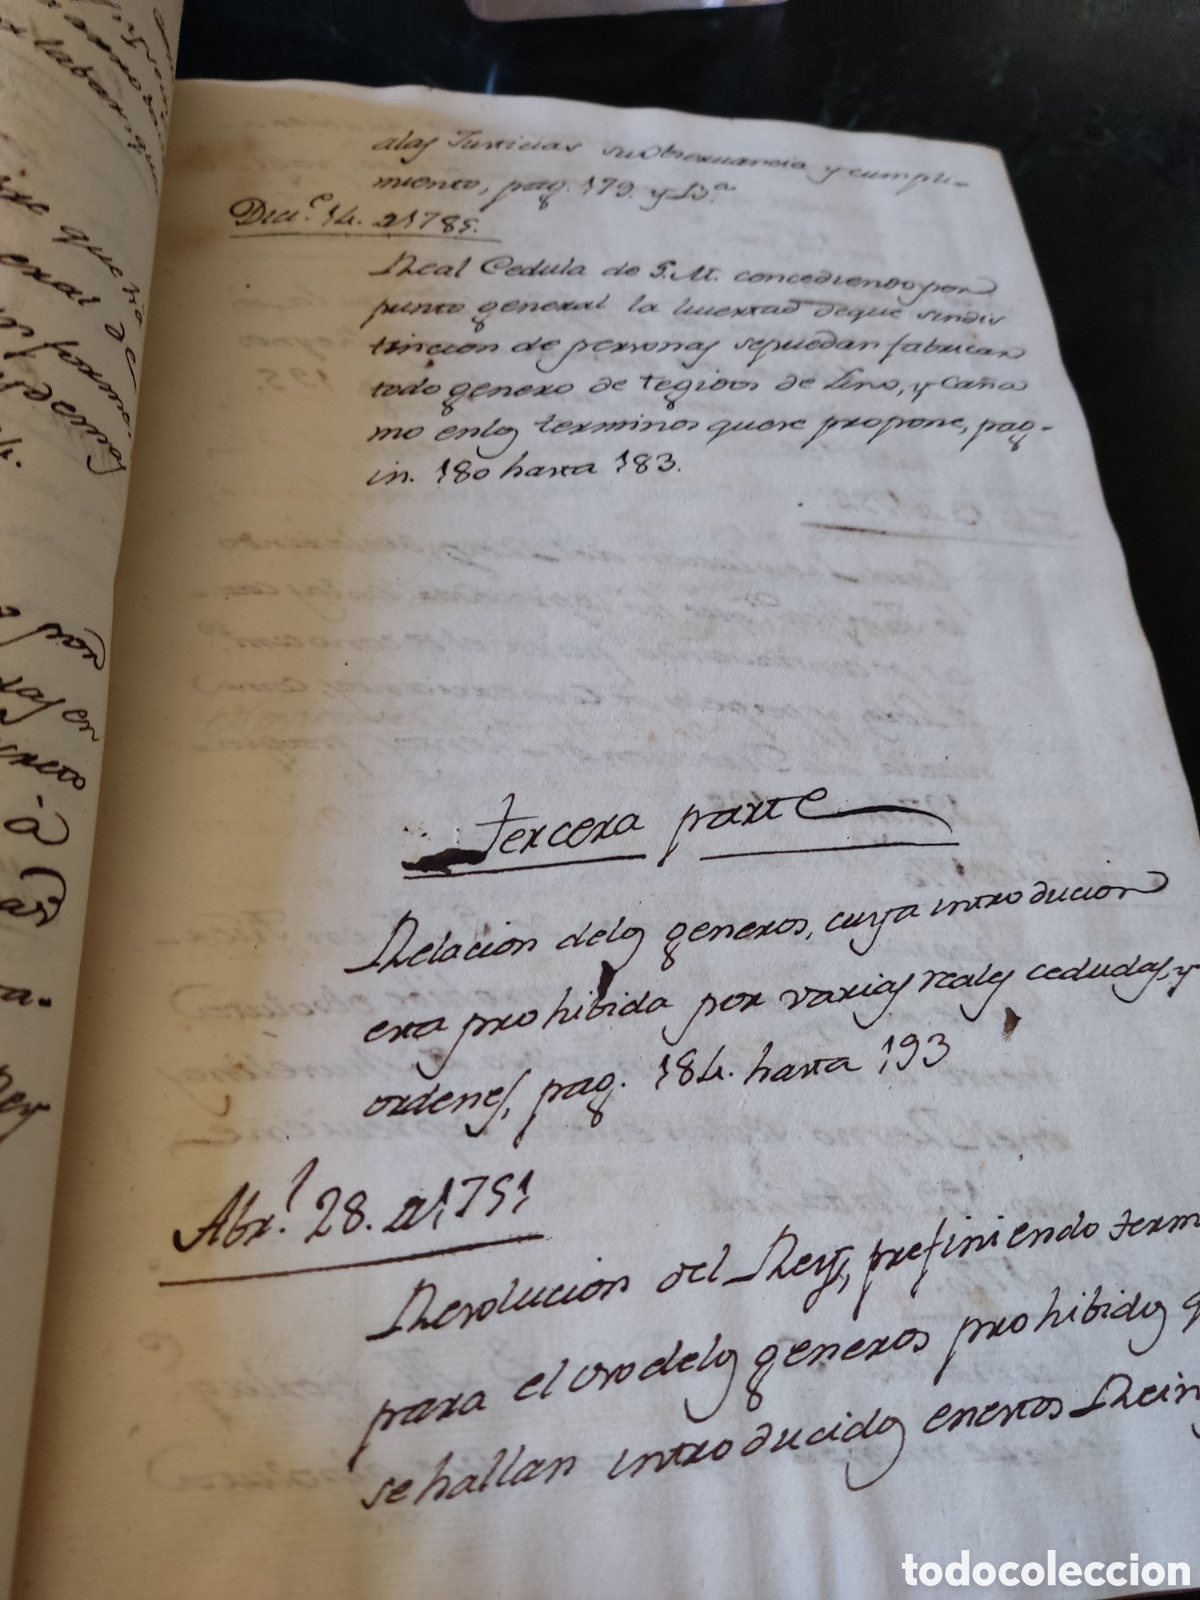 alas Justicias su Observancia y cumpli-
miento, pag. 179. y B.ª
Dici.e 14. a 1785.
Real Cedula de S. M. concediendo por
punto general la livertad deque sindis
tincion de personas sepuedan fabricar
todo genero de tegidos de Lino, y Caña
mo enlos terminos quese propone, pag-
in. 180 hasta 183.
tercera parte
Relacion delos generos, cuya introducion
esta prohibida por varias reales cedudas, y
ordenes, pag. 184. hasta 193
Abr.l 28. a 1751
Resolucion del Rey, prefiniendo term
para el uso delos generos prohibidos q
se hallan introducidos enestos Rein
laban, que
que ha
exal de
demas
por
en
à
a.
todocoleccion